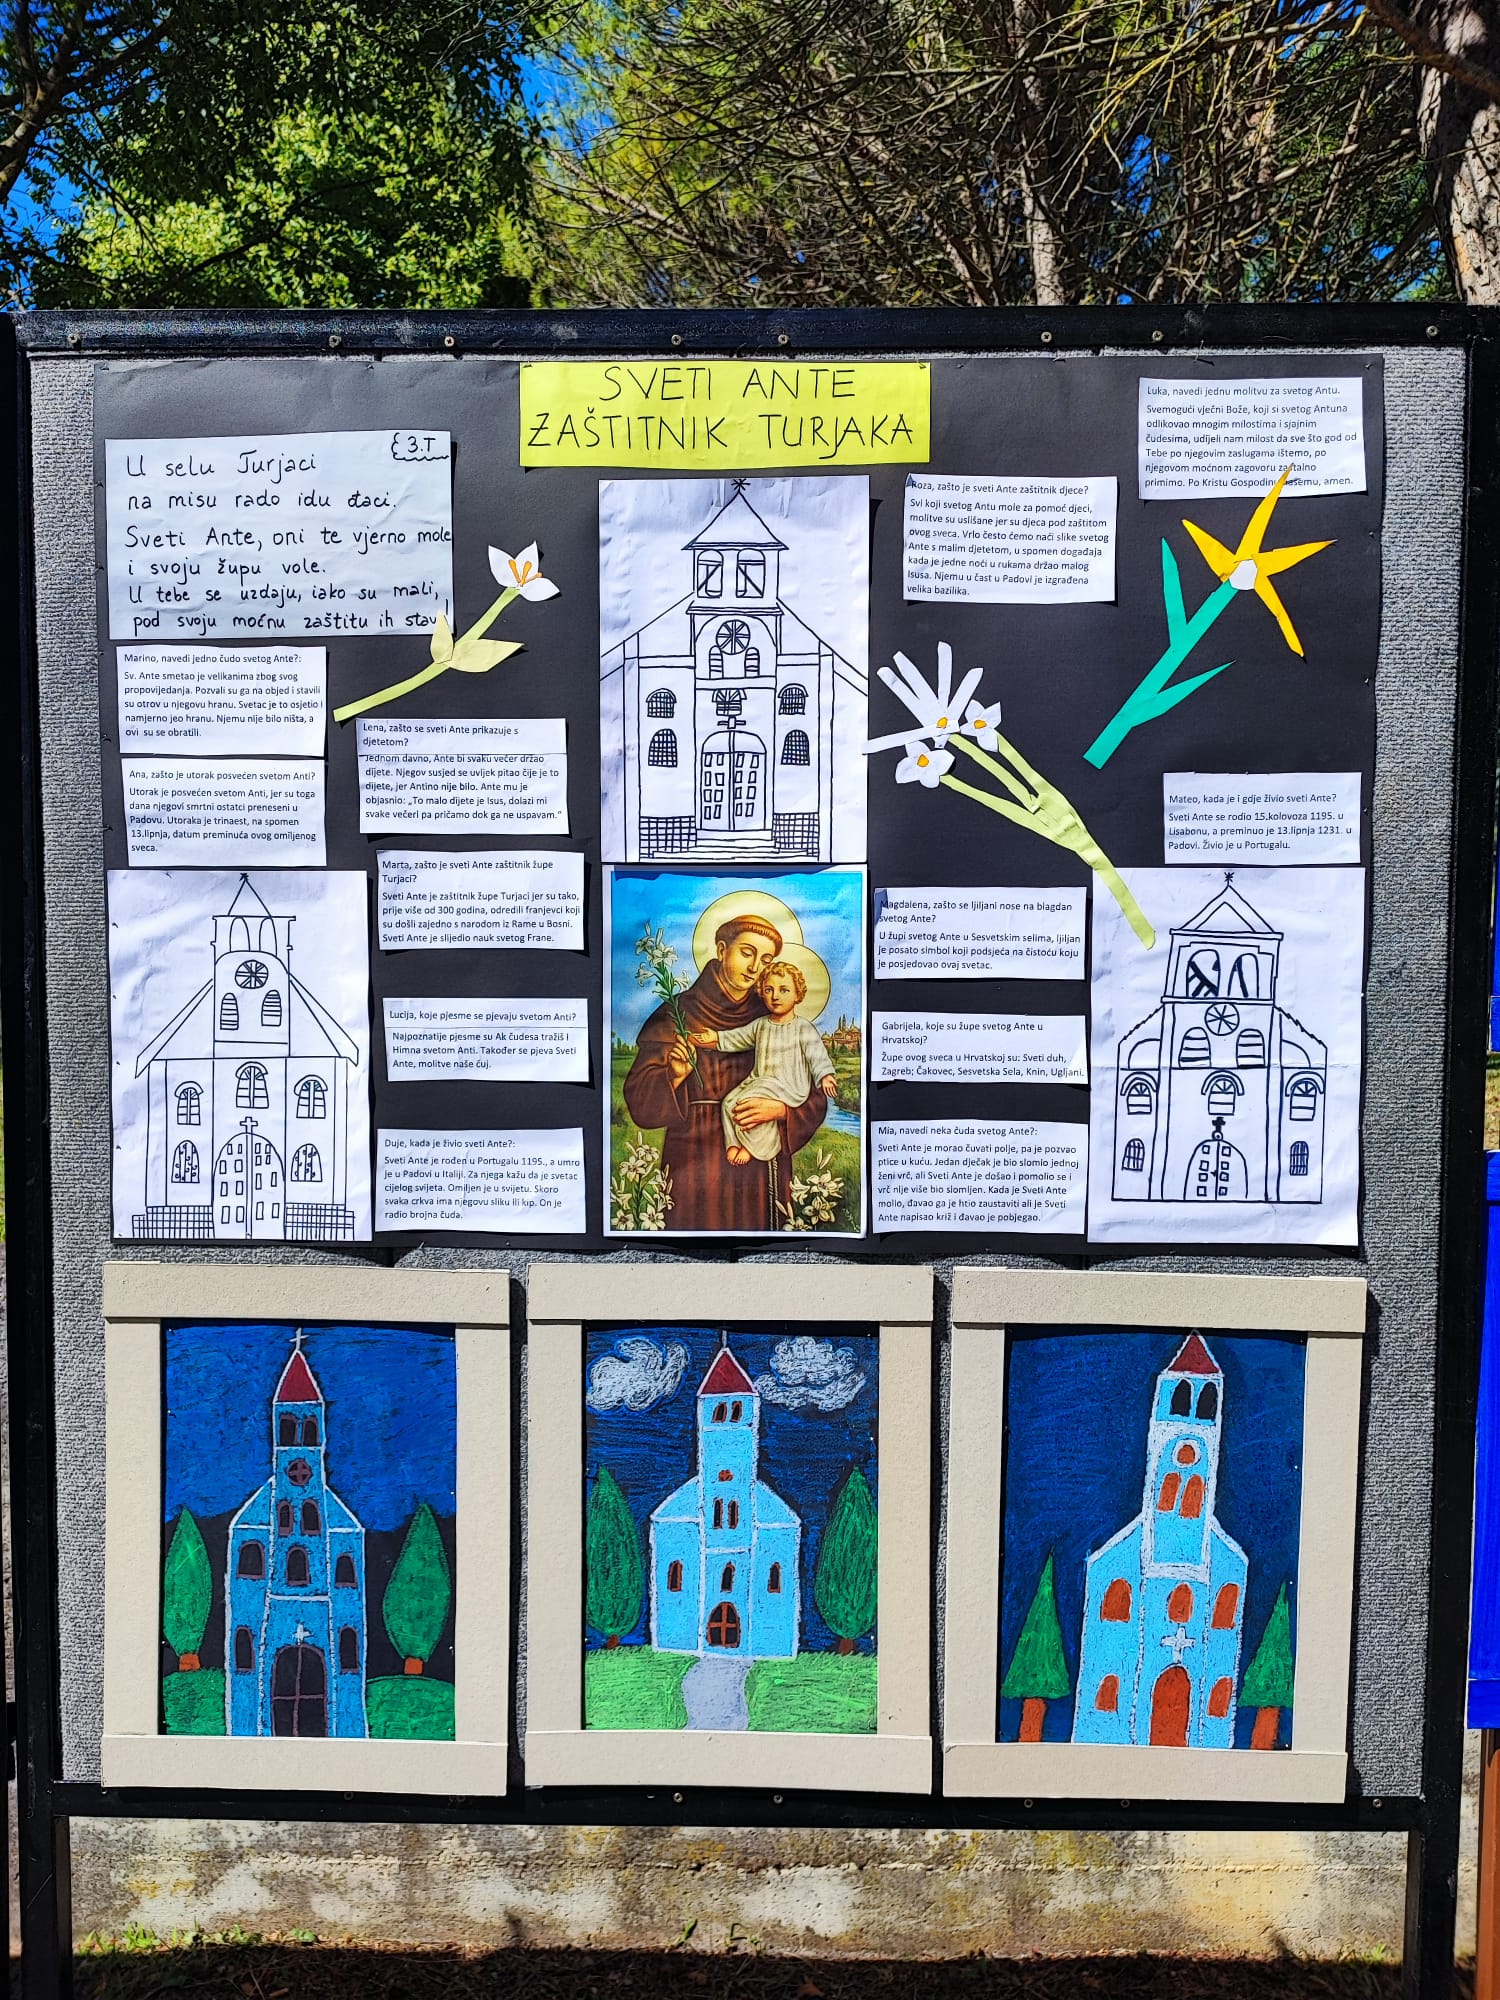 SVETI ANTE
ZAŠTITNIK TURJAKA
3.T
U selu Turjaci
na misu rado idu đaci.
Sveti Ante, oni te vjerno mole
i svoju župu vole.
U tebe se uzdaju, iako su mali,
pod svoju moćnu zaštitu ih stavi
Marino, navedi jedno čudo svetog Ante?:
Sv. Ante smetao je velikanima zbog svog
propovijedanja. Pozvali su ga na objed i stavili
su otrov u njegovu hranu. Svetac je to osjetio i
namjerno jeo hranu. Njemu nije bilo ništa, a
ovi su se obratili.
Ana, zašto je utorak posvećen svetom Anti?
Utorak je posvećen svetom Anti, jer su toga
dana njegovi smrtni ostatci preneseni u
Padovu. Utoraka je trinaest, na spomen
13.lipnja, datum preminuća ovog omiljenog
sveca.
Lena, zašto se sveti Ante prikazuje s
djetetom?
Jednom davno, Ante bi svaku večer držao
dijete. Njegov susjed se uvijek pitao čije je to
dijete, jer Antino nije bilo. Ante mu je
objasnio: „To malo dijete je Isus, dolazi mi
svake večeri pa pričamo dok ga ne uspavam.“
Marta, zašto je sveti Ante zaštitnik župe
Turjaci?
Sveti Ante je zaštitnik župe Turjaci jer su tako,
prije više od 300 godina, odredili franjevci koji
su došli zajedno s narodom iz Rame u Bosni.
Sveti Ante je slijedio nauk svetog Frane.
Lucija, koje pjesme se pjevaju svetom Anti?
Najpoznatije pjesme su Ak čudesa tražiš i
Himna svetom Anti. Također se pjeva Sveti
Ante, molitve naše čuj.
Duje, kada je živio sveti Ante?:
Sveti Ante je rođen u Portugalu 1195., a umro
je u Padovi u Italiji. Za njega kažu da je svetac
cijelog svijeta. Omiljen je u svijetu. Skoro
svaka crkva ima njegovu sliku ili kip. On je
radio brojna čuda.
Luka, navedi jednu molitvu za svetog Antu.
Svemogući vječni Bože, koji si svetog Antuna
odlikovao mnogim milostima i sjajnim
čudesima, udijeli nam milost da sve što god od
Tebe po njegovim zaslugama ištemo, po
njegovom moćnom zagovoru
primimo. Po Kristu Gospodinu našemu, amen.
Roza, zašto je sveti Ante zaštitnik djece?
Svi koji svetog Antu mole za pomoć djeci,
molitve su uslišane jer su djeca pod zaštitom
ovog sveca. Vrlo često ćemo naći slike svetog
Ante s malim djetetom, u spomen događaja
kada je jedne noći u rukama držao malog
Isusa. Njemu u čast u Padovi je izgrađena
velika bazilika.
Mateo, kada je i gdje živio sveti Ante?
Sveti Ante se rodio 15.kolovoza 1195. u
Lisabonu, a preminuo je 13.lipnja 1231. u
Padovi. Živio je u Portugalu.
Magdalena, zašto se ljiljani nose na blagdan
svetog Ante?
U župi svetog Ante u Sesvetskim selima, ljiljan
je posato simbol koji podsjeća na čistoću koju
je posjedovao ovaj svetac.
Gabrijela, koje su župe svetog Ante u
Hrvatskoj?
Župe ovog sveca u Hrvatskoj su: Sveti duh,
Zagreb; Čakovec, Sesvetska Sela, Knin, Ugljani.
Mia, navedi neka čuda svetog Ante?:
Sveti Ante je morao čuvati polje, pa je pozvao
ptice u kuću. Jedan dječak je bio slomio jednoj
ženi vrč, ali Sveti Ante je došao i pomolio se i
vrč nije više bio slomljen. Kada je Sveti Ante
molio, đavao ga je htio zaustaviti ali je Sveti
Ante napisao križ i đavao je pobjegao.